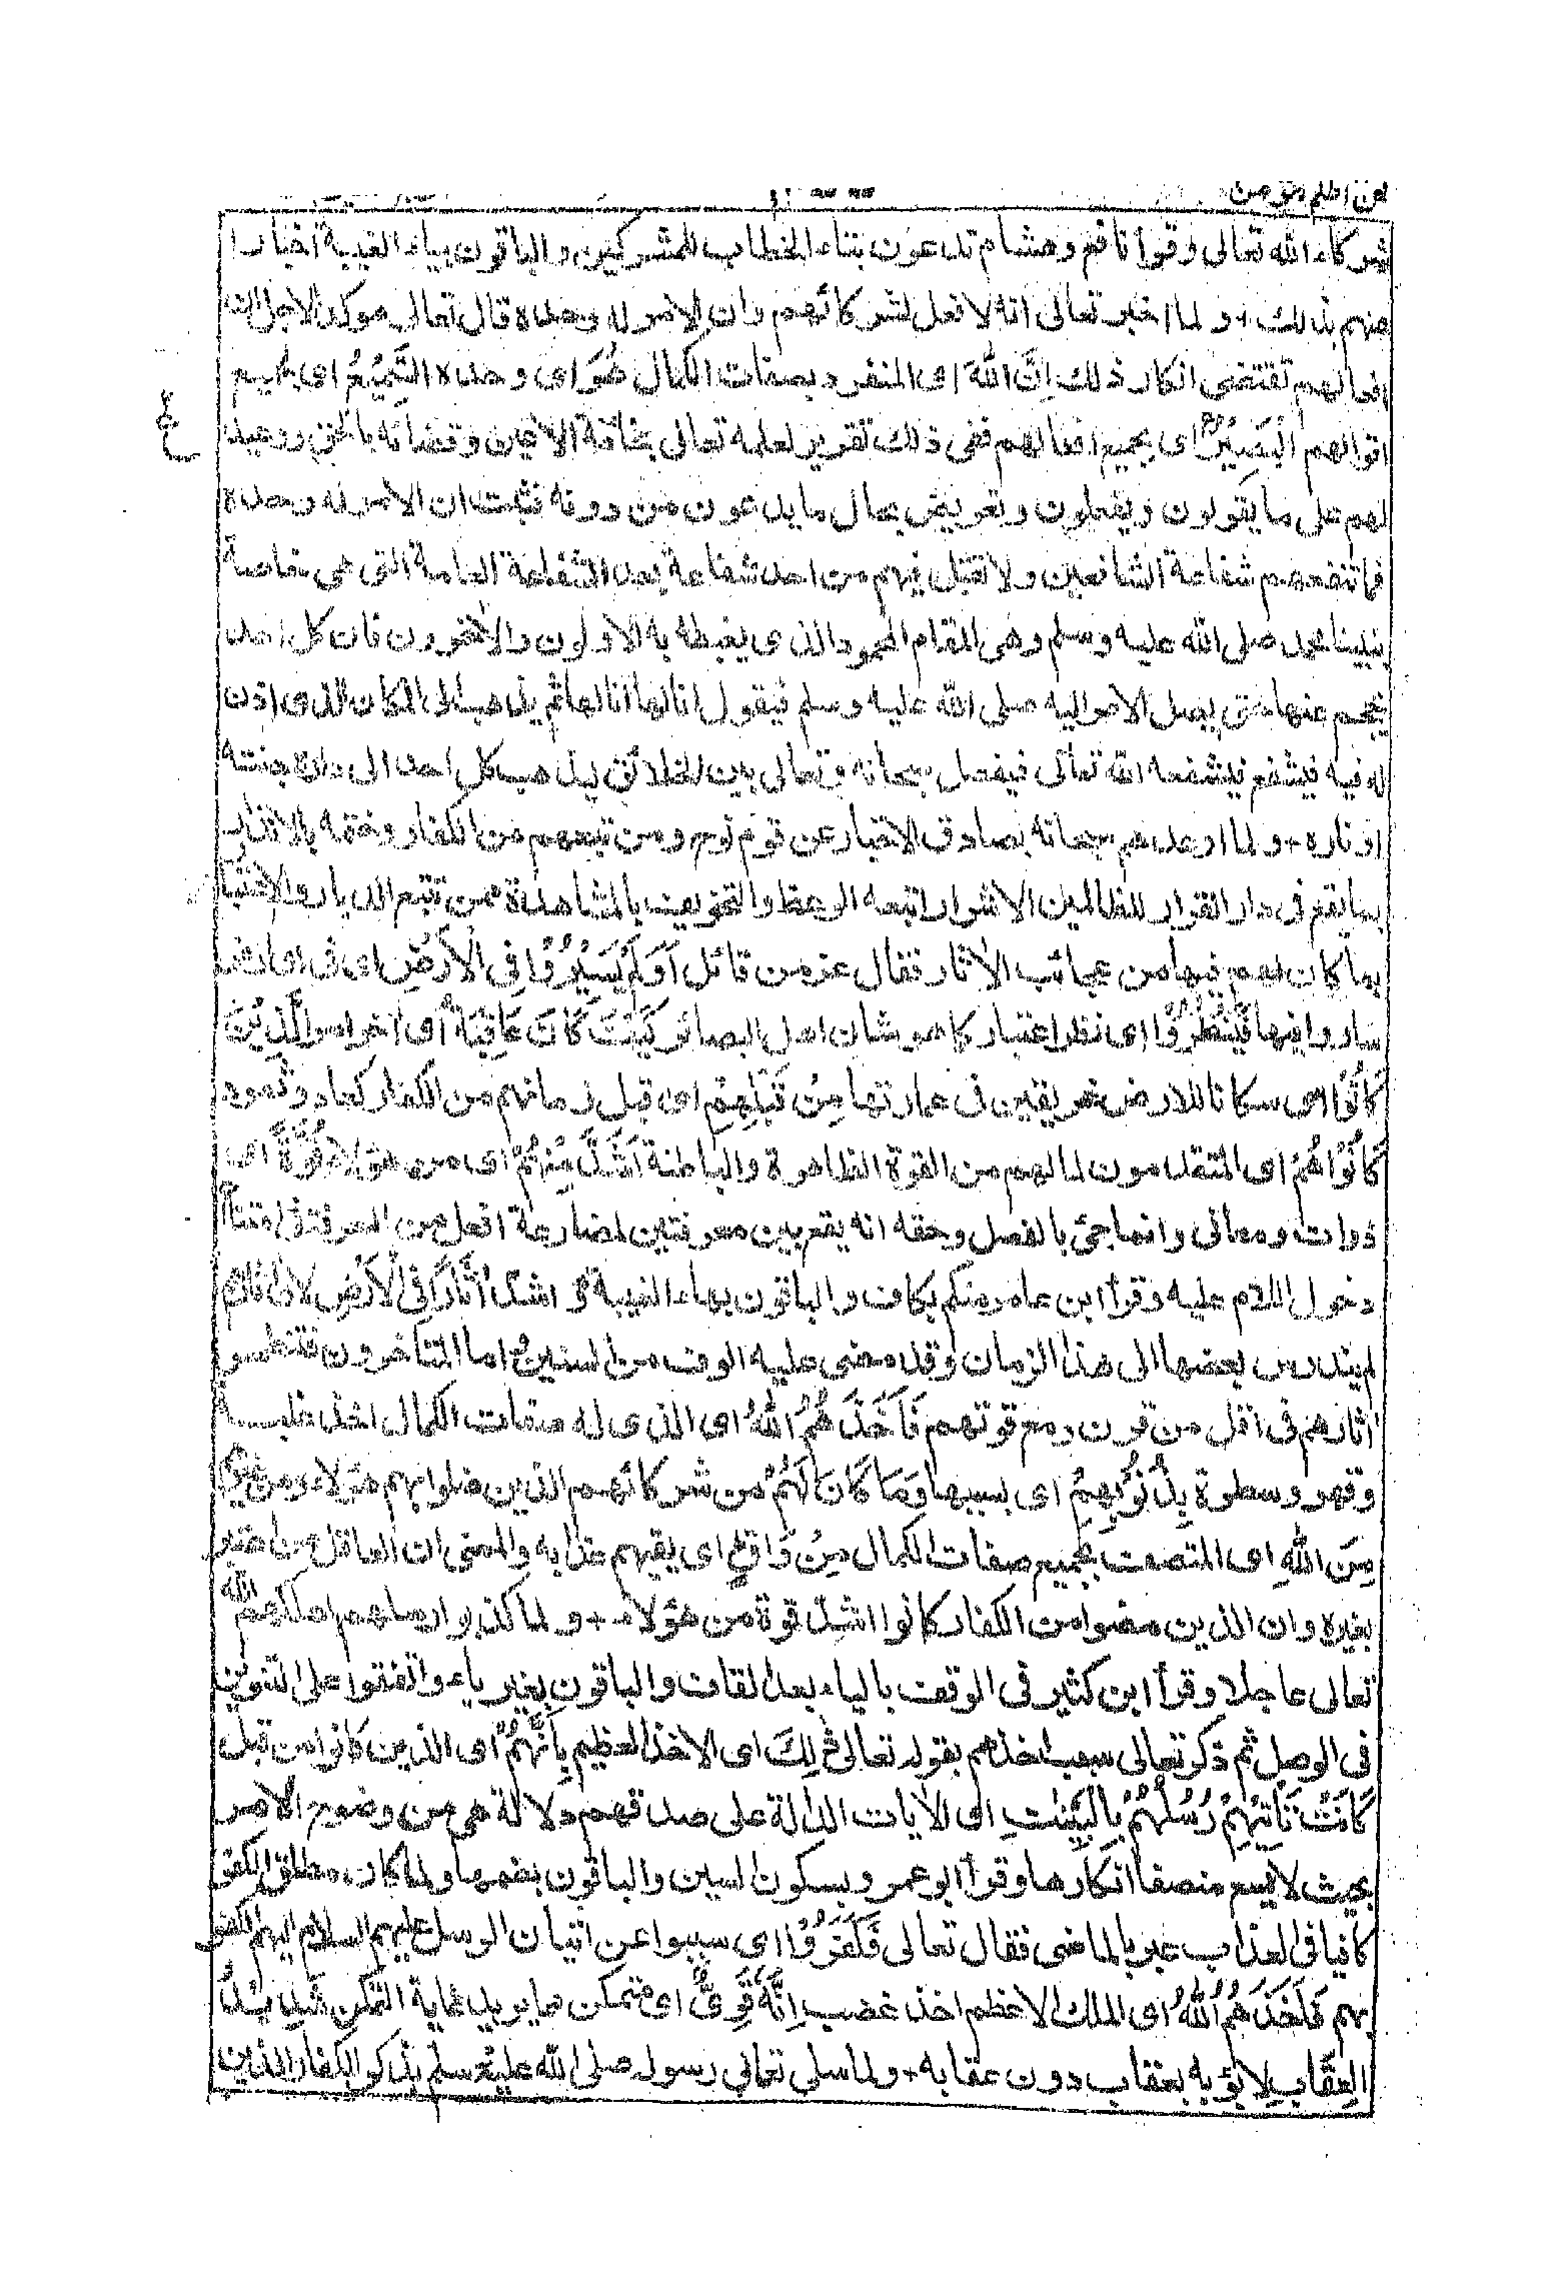 فمن اظلم
شركاء الله تعالى وقرأ نافع وهشام تدعون بتاء الخطاب للمشركين والباقون بياء الغيبة اخبارا
عنهم بذلك + ولما اخبر تعالى انه لا فعل لشركائهم وان الامر له وحده قال تعالى مؤكدا لاجل ان
افعالهم تقتضى انكار ذلك اِنَّ اللهَ اى المنفرد بصفات الكمال هُوَ اى وحده السَّمِيْعُ اى بجميع
اقوالهم الْبَصِيْرُ اى بجميع افعالهم ففى ذلك تقرير لعلمه تعالى بخائنة الاعين وقضائه بالحق ووعيد
لهم على ما يقولون ويفعلون وتعريض بحال ما يدعون من دونه فثبت ان الامر له وحده
فما تنفعهم شفاعة الشافعين ولا تقبل فيهم من احد شفاعة بعد الشفاعة العامة التى هى خاصة
بنبينا محمد صلى الله عليه وسلم وهى المقام المحمود الذى يغبطه به الاولون والاٰخرون فان كل احد
يحجم عنها حتى يصل الامر اليه صلى الله عليه وسلم فيقول انا لها انا لها ثم يذهب الى المكان الذى اذن
له فيه فيشفع فيشفعه الله تعالى فيفصل سبحانه وتعالى بين الخلائق ليذهب كل احد الى داره جنته
او ناره + ولما اوعدهم سبحانه بصادق الاخبار عن قوم نوح ومن تبعهم من الكفار وختمه بالانذار
بما يقع فى دار القرار للظالمين الاشرار اتبعه الوعظ والتخويف بالمشاهدة ممن تتبع الديار والاعتبار
بما كان لهم فيها من عجائب الاٰثار فقال عز من قائل اَوَلَمْ يَسِيْرُوْا فِى الْاَرْضِ اى فى اى ارض
ساروا فيها فَيَنْظُرُوْا اى نظر اعتبار كما هو شان اهل البصائر كَيْفَ كَانَ عَاقِبَةُ اى اٰخر امر الَّذِيْنَ
كَانُوْا اى سكانا للارض عريقين فى عمارتها مِنْ قَبْلِهِمْ اى قبل زمانهم من الكفار كعاد وثمود
كَانُوْا هُمْ اى المتقدمون لما لهم من القوة الظاهرة والباطنة اَشَدَّ مِنْهُمْ اى من هؤلاء قُوَّةً اى
ذوات ومعانى وانما جئ بالفصل وحقه انه يقع بين معرفتين لمضارعة افعل من المعرفة فى امتناع
دخول اللام عليه وقرأ ابن عامر منكم بكاف والباقون بهاء الغيبة وَ اشد اٰثَارًا فِى الْاَرْضِ لان اٰثارهم
لم يندرس بعضها الى هذا الزمان وقد مضى عليه الوف من السنين واما المتأخرون فتنطمس
اٰثارهم فى اقل من قرن ومع قوتهم فَاَخَذَهُمُ اللهُ اى الذى له صفات الكمال اخذ غلبة
وقهر وسطوة بِذُنُوْبِهِمْ اى بسببها وَمَا كَانَ لَهُمْ من شركائهم الذين ضلوا بهم هؤلاء ومن غيرهم
مِنَ اللهِ اى المتصف بجميع صفات الكمال مِنْ وَّاقٍ اى يقيهم عذابه والمعنى ان العاقل من اعتبر
بغيره وان الذين مضوا من الكفار كانوا اشد قوة من هؤلاء + ولما كذبوا رسلهم اهلكهم الله
تعالى عاجلا وقرأ ابن كثير فى الوقف بالياء بعد القاف والباقون بغير ياء واتفقوا على التنوين
فى الوصل ثم ذكر تعالى سبب اخذهم بقوله تعالى ذٰلِكَ اى الاخذ العظيم بِاَنَّهُمْ اى الذين كانوا من قبل
كَانَتْ تَّاْتِيْهِمْ رُسُلُهُمْ بِالْبَيِّنٰتِ اى الاٰيات الدالة على صدقهم دلالة هى من وضوح الامر
بحيث لا يسع منصفا انكارها وقرأ ابو عمرو بسكون السين والباقون بضمها ولما كان مطلق الكفر
كافيا فى العذاب عبر بالماضى فقال تعالى فَكَفَرُوْا اى سببوا عن اتيان الرسل عليهم السلام اليهم الكفر
بهم فَاَخَذَهُمُ اللهُ اى الملك الاعظم اخذ غضب اِنَّهٗ قَوِىٌّ اى متمكن مما يريد غاية التمكن شَدِيْدُ
الْعِقَابِ لا يؤبه بعقاب دون عقابه + ولما سلى تعالى رسوله صلى الله عليه وسلم بذكر الكفار الذين
ع